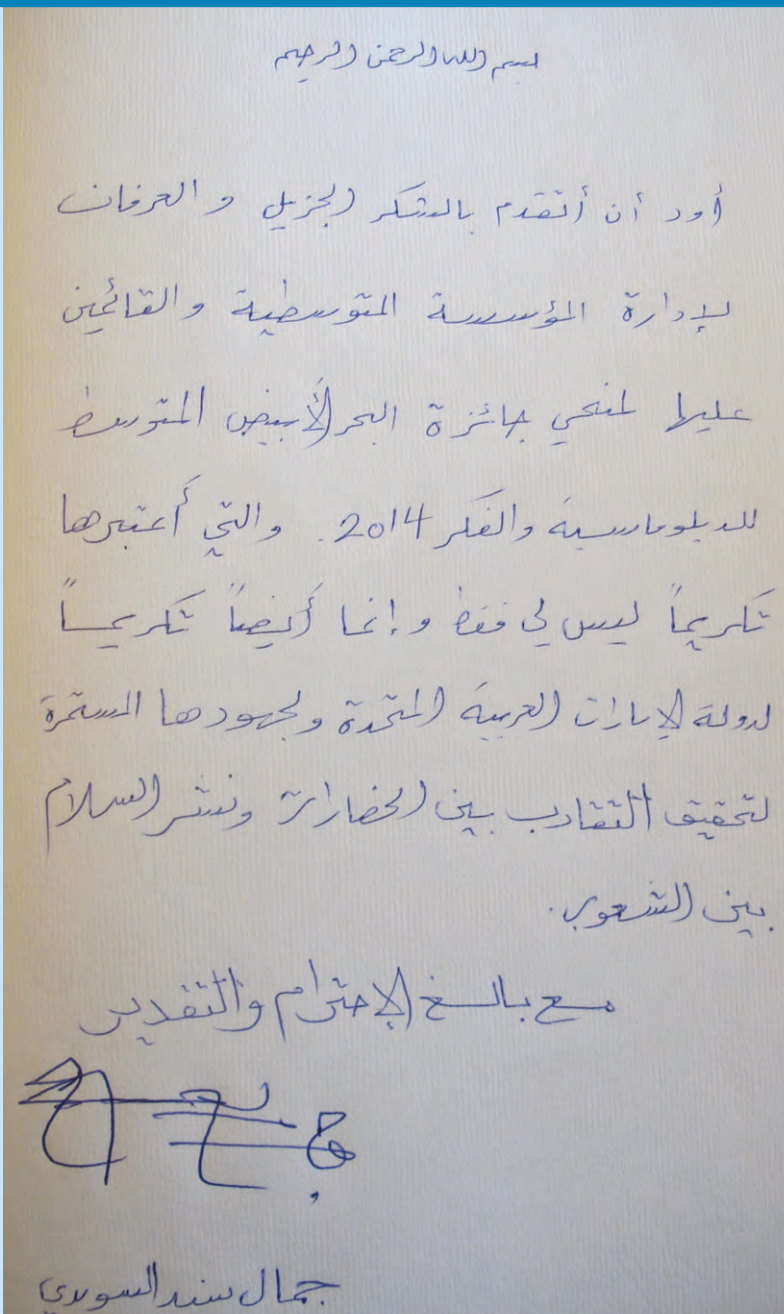 بسم الله الرحمن الرحيم
أود أن أتقدم بالشكر الجزيل و العرفان
لإدارة المؤسسة المتوسطية والقائمين
عليها لمنحي جائزة البحر الأبيض المتوسط
للدبلوماسية والفكر 2014. والتي أعتبرها
تكريماً ليس لي فقط وإنما أيضاً تكريماً
لدولة الإمارات العربية المتحدة ولجهودها المستمرة
لتحقيق التقارب بين الحضارات ونشر السلام
بين الشعوب.
مع بالغ الإحترام والتقدير
جمال سند السويدي